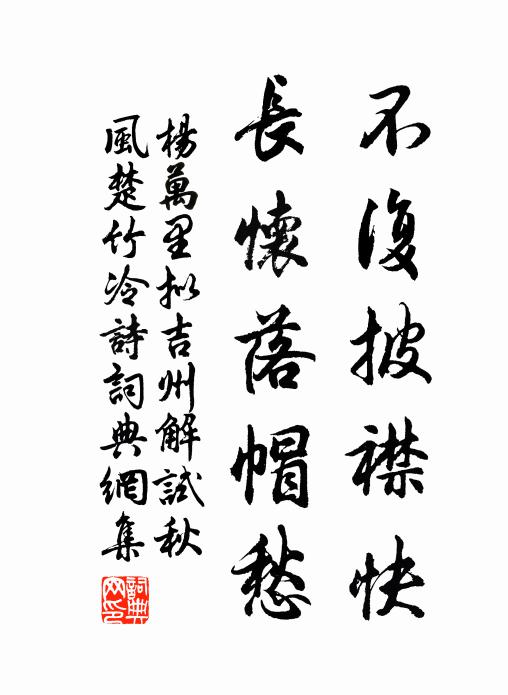 不復披襟快
長懷落帽愁
楊萬里拟吉州解試秋
風楚竹冷詩詞典網集
詞典
网印